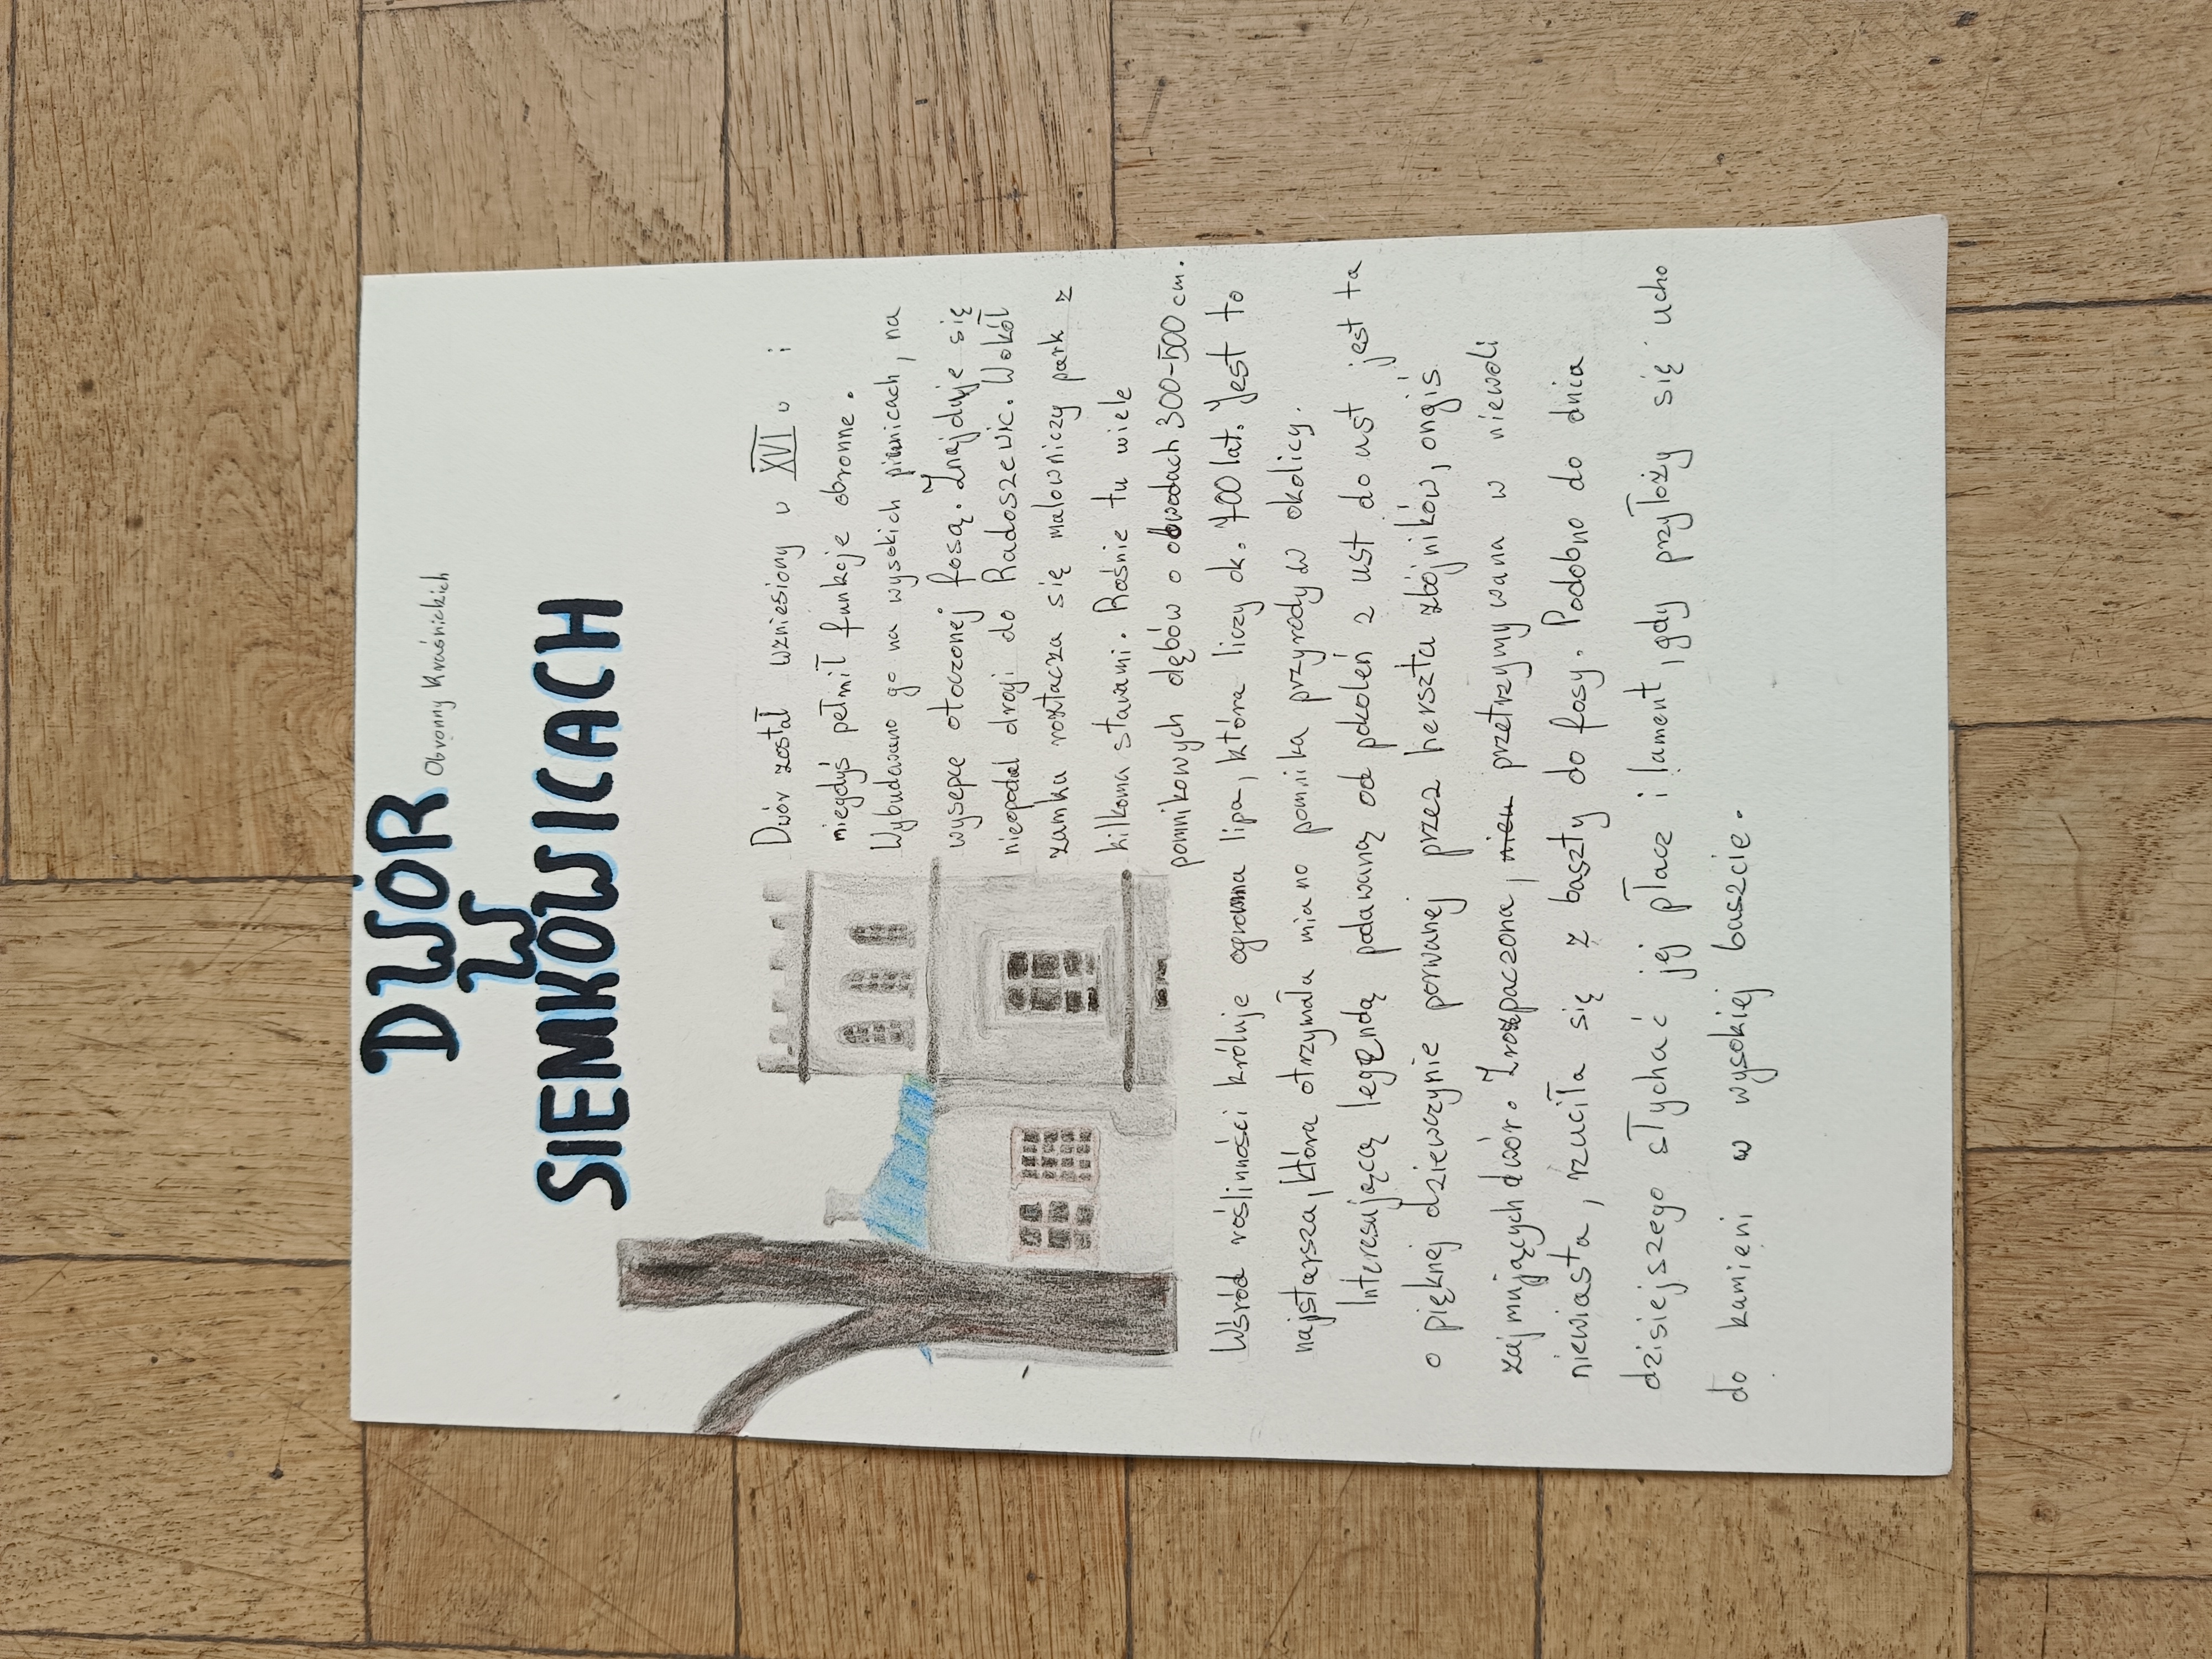 DWÓR Obronny Kraśnickich
W
SIEMKOWICACH
Dwór został wzniesiony w XVI w i
niegdyś pełnił funkcje obronne.
Wybudowano go na wysokich piwnicach, na
wysepce otoczonej fosą. Znajduje się
nieopodal drogi do Radoszewic. Wokół
zamku roztacza się malowniczy park z
kilkoma stawami. Rośnie tu wiele
pomnikowych dębów o obwodach 300-500 cm.
Wśród roślinności króluje ogromna lipa, która liczy ok. 700 lat. Jest to
najstarsza, która otrzymała miano pomnika przyrody w okolicy.
Interesującą legendą podawaną od pokoleń z ust do ust jest ta
o pięknej dziewczynie porwanej przez herszta zbójników, ongiś
zajmujących dwór. Zrozpaczona, niew przetrzymywana w niewoli
niewiasta, rzuciła się z baszty do fosy. Podobno do dnia
dzisiejszego słychać jej płacz i lament, gdy przyłoży się ucho
do kamieni w wysokiej baszcie.